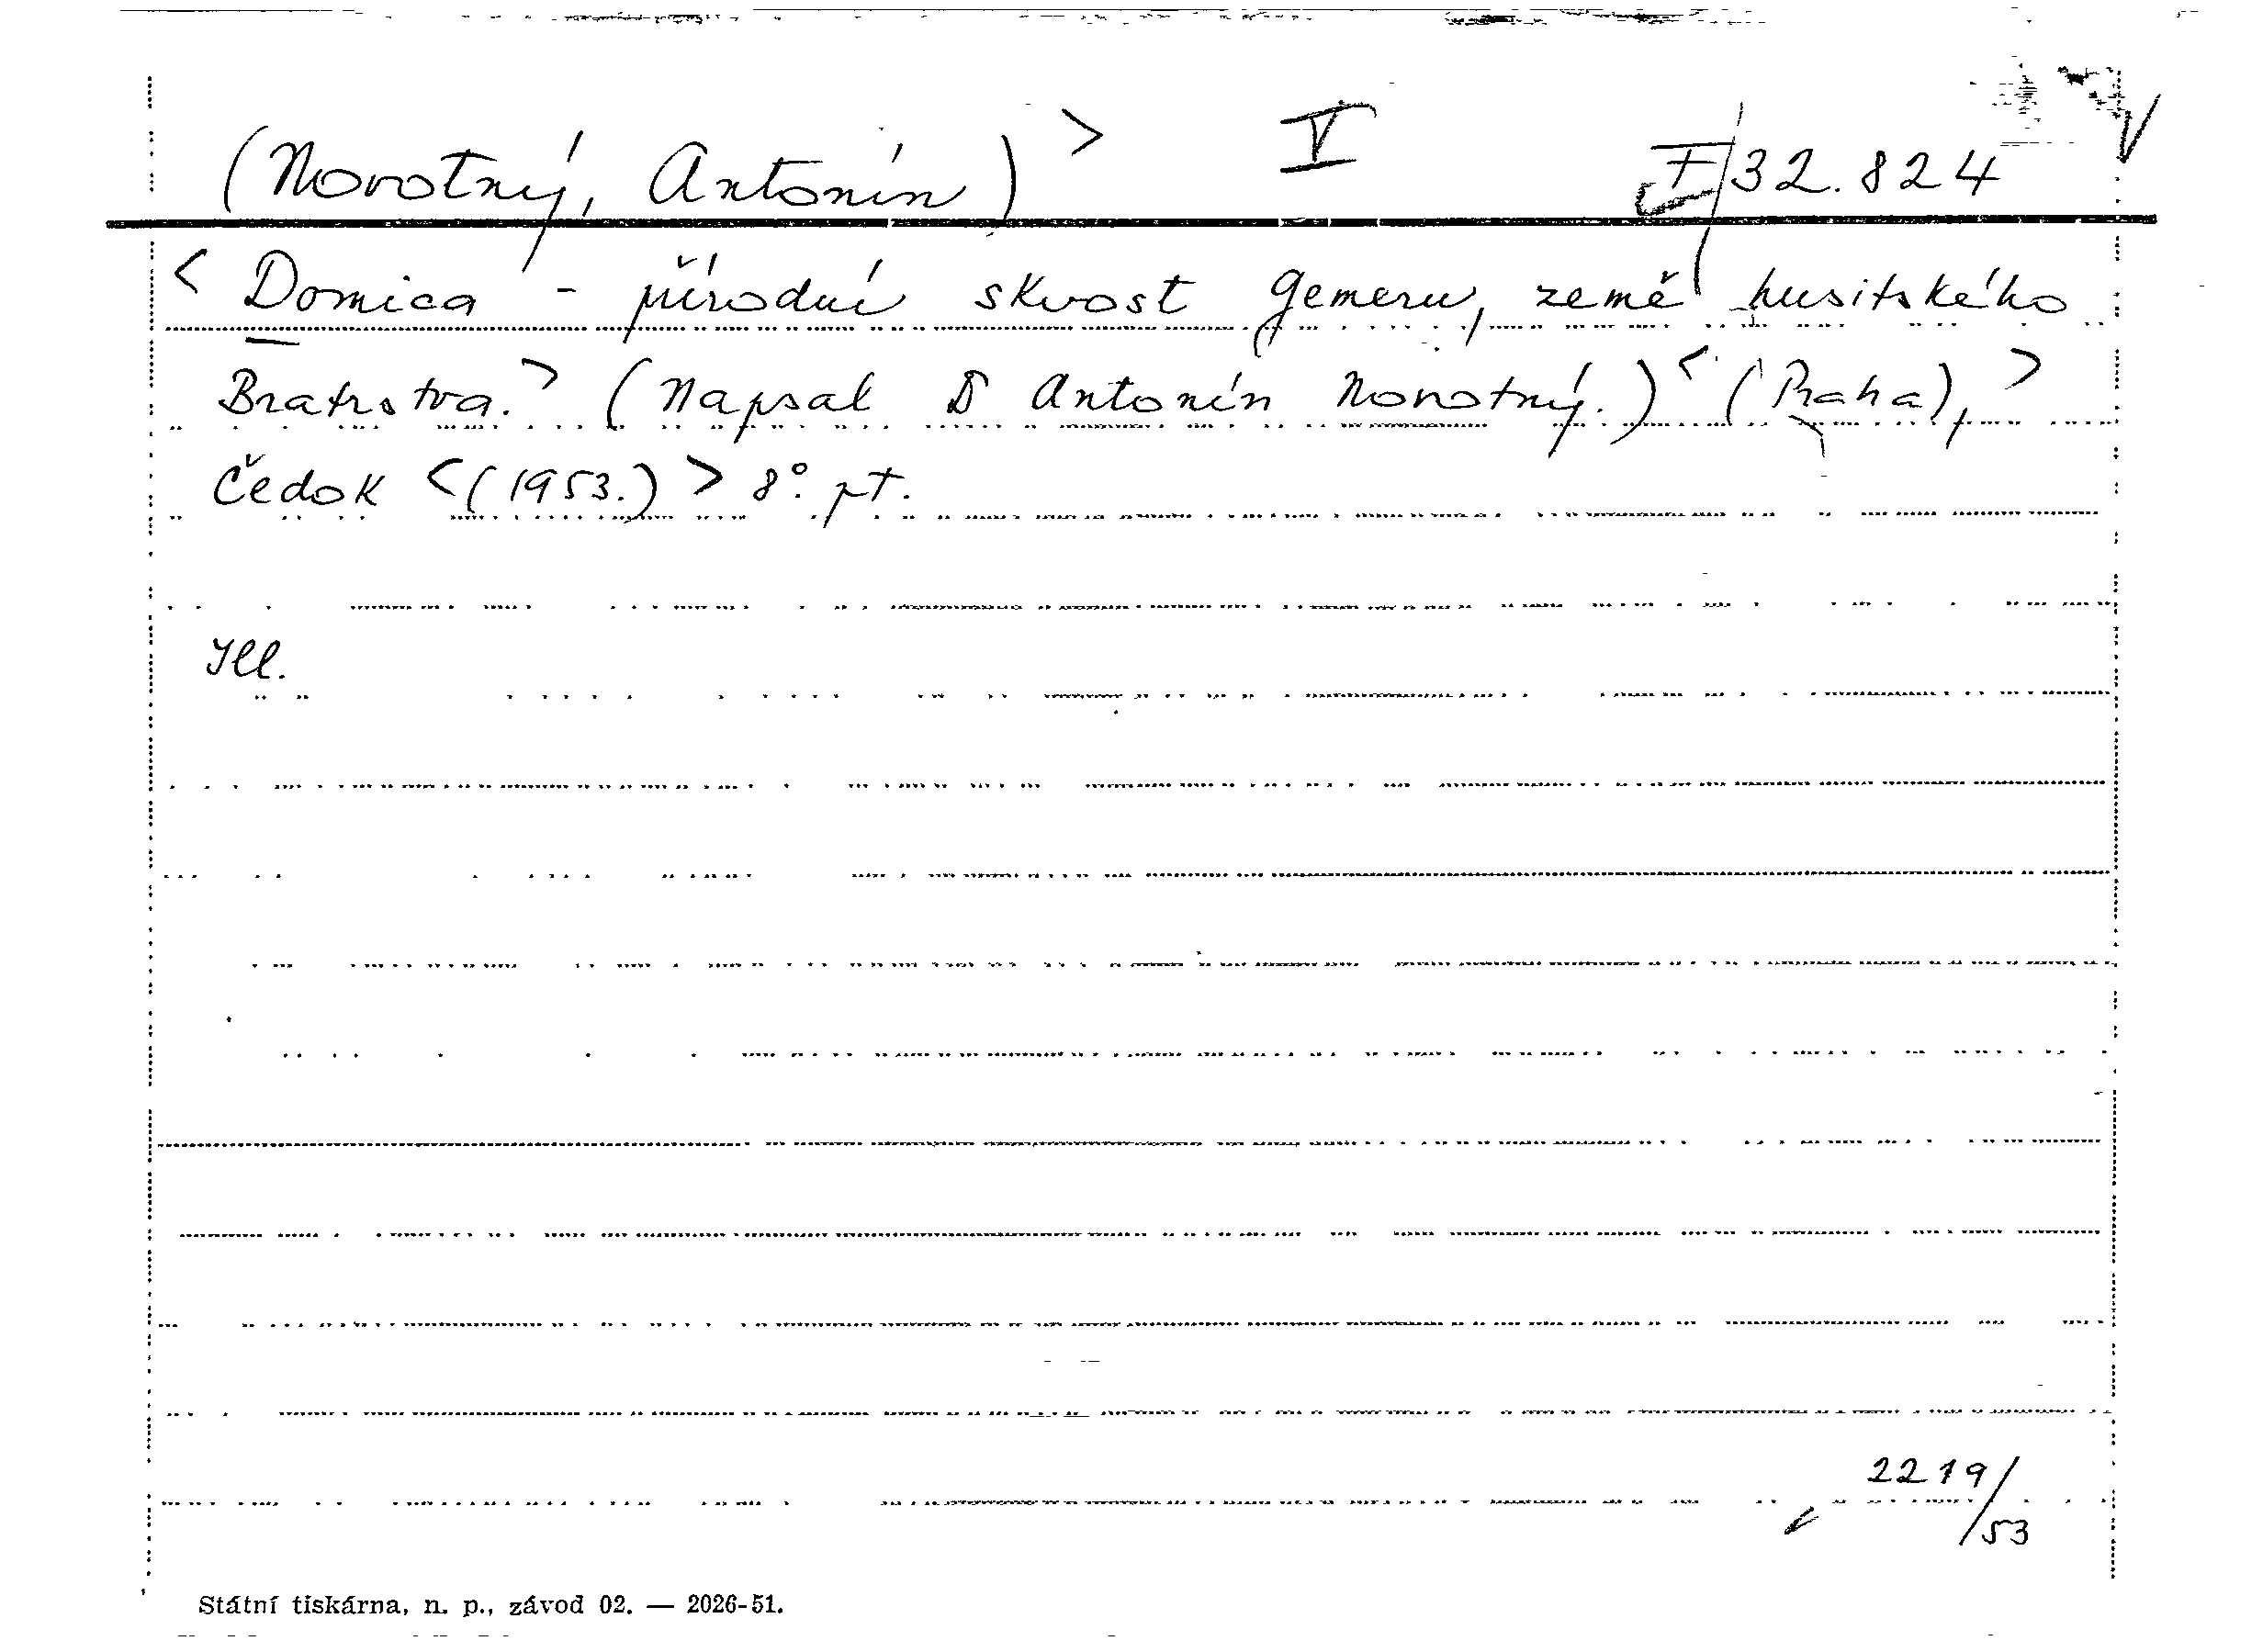 (Novotný, Antonín) > V F 32.824
< Domica - přírodní skvost Gemeru, země husitského
Bratrstva. > (Napsal Dr Antonín Novotný.) < (Praha), >
Čedok < (1953.) > 8°. pt.
Ill.
2219/53
Státní tiskárna, n. p., závod 02. — 2026-51.